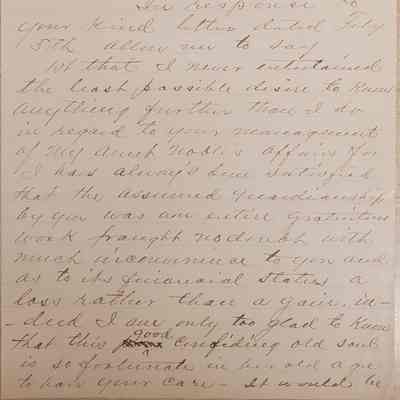 In response to
your kind letter dated July
5th allow me to say
1st that I never entertained
the least possible desire to know
anything further than I do
in regard to your management
of my Aunt Noble's affairs for
I have always been satisfied
that the assumed guardianship
by you was an entire gratuitous
work fraught no doubt with
much inconvenience to you and
as to its financial status a
loss rather than a gain, in-
-deed I am only too glad to know
that this good confiding old soul
is so fortunate in her old age
to have your care - It would be